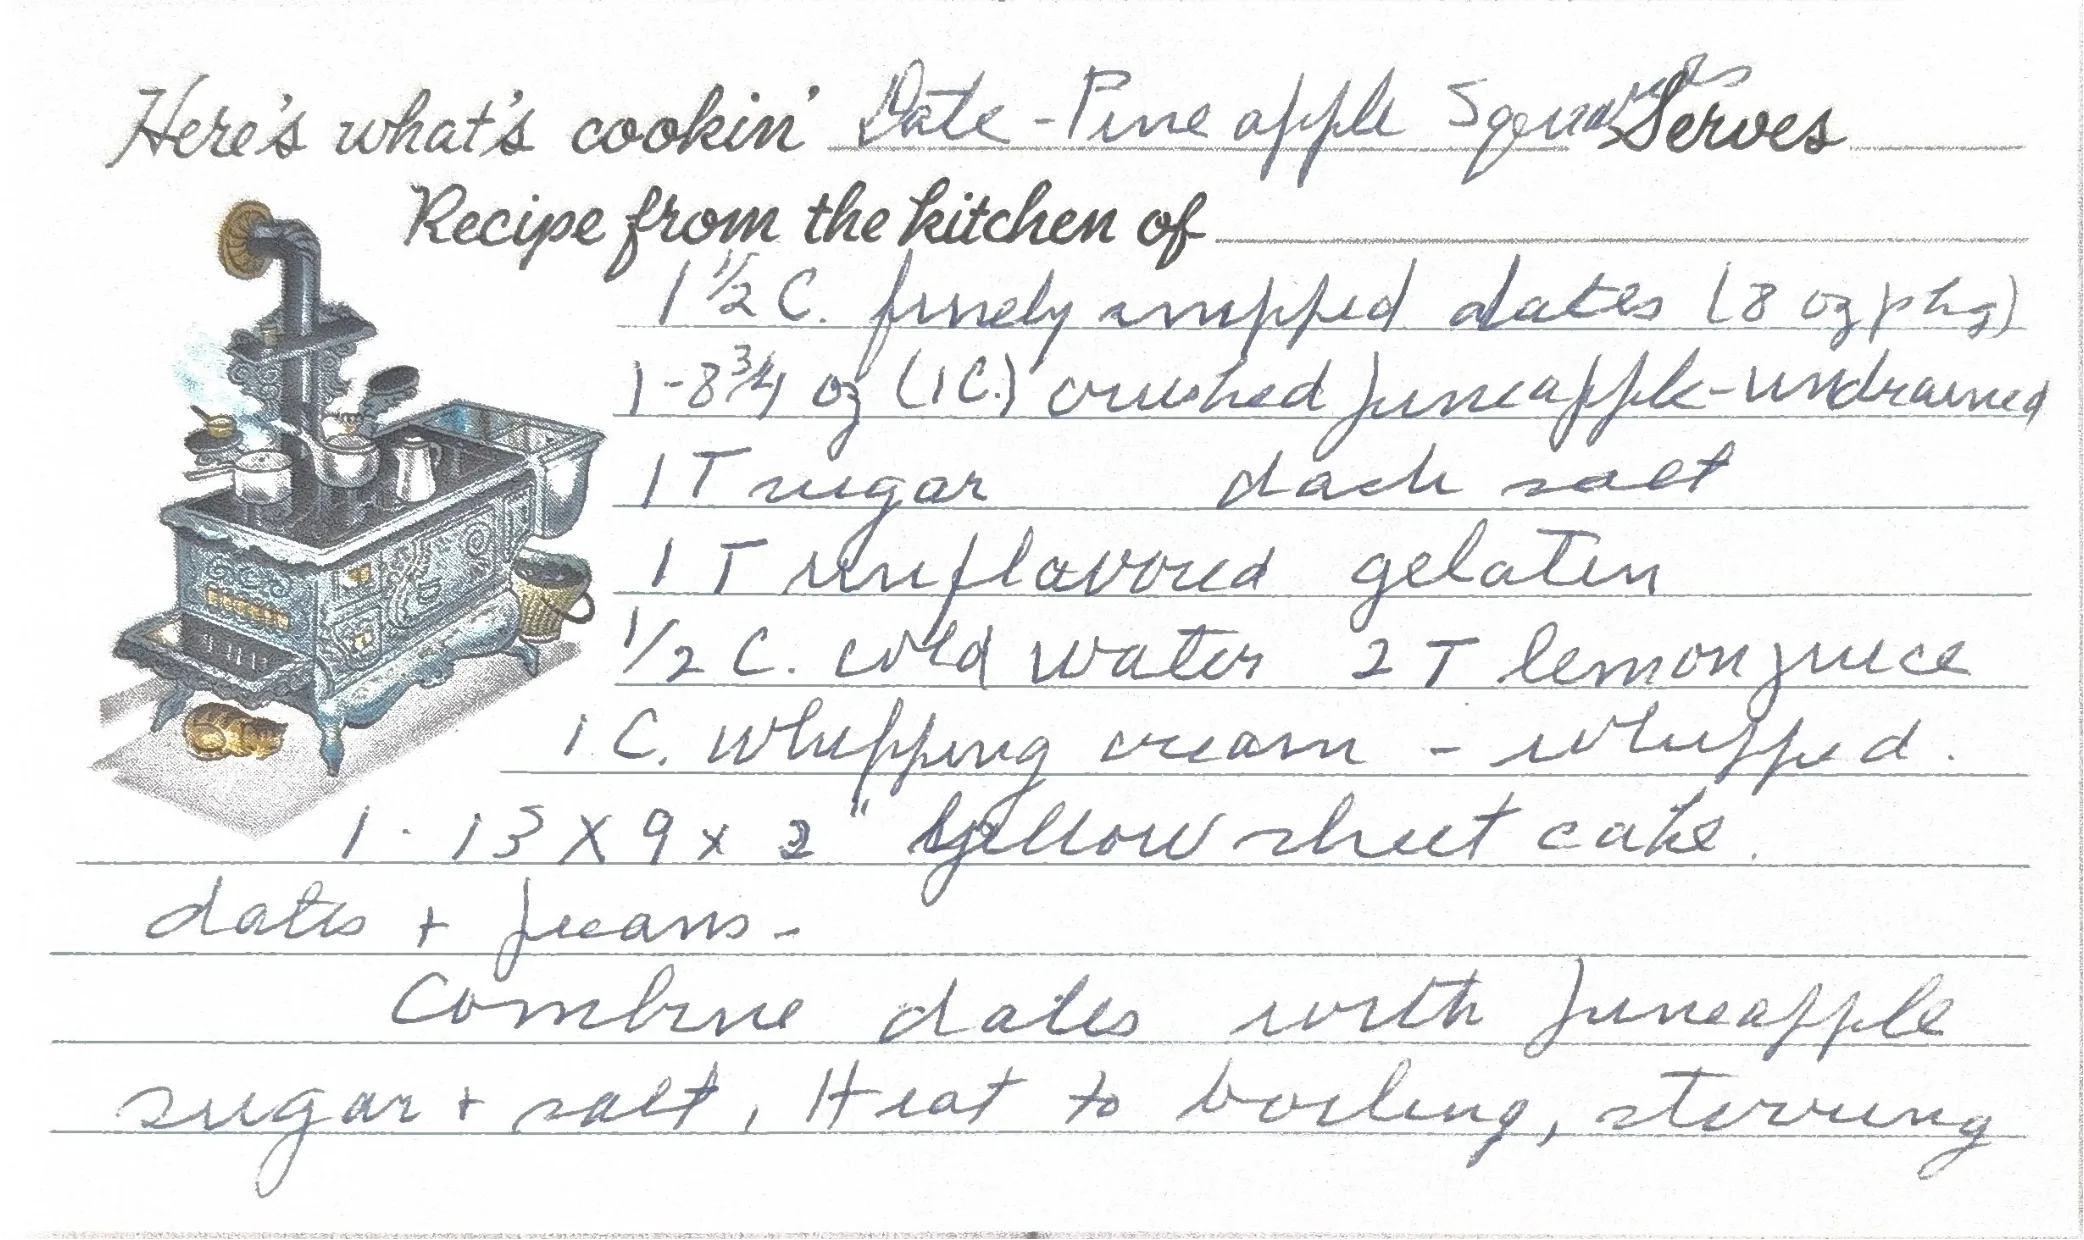 Here's what's cookin' Date-Pineapple Squares Serves
Recipe from the kitchen of
1 1/2 C. finely snipped dates (8 oz pkg)
1-8 3/4 oz (1C.) crushed pineapple-undrained
1 T sugar dash salt
1 T unflavored gelatin
1/2 C. cold water 2 T lemon juice
1 C. whipping cream - whipped.
1 - 13 X 9 x 2" yellow sheet cake.
dates + pecans -
Combine dates with pineapple
sugar + salt, Heat to boiling, stirring